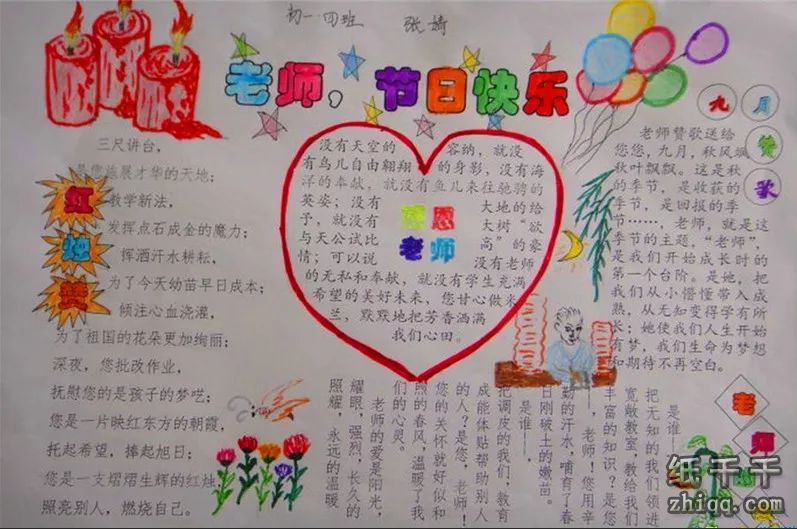 初一·四班 张婧
老师，节日快乐
红烛赞
三尺讲台，
是您施展才华的天地；
教学新法，
发挥点石成金的魔力；
挥洒汗水耕耘，
为了今天幼苗早日成本；
倾注心血浇灌，
为了祖国的花朵更加绚丽；
深夜，您批改作业，
抚慰您的是孩子的梦呓；
您是一片映红东方的朝霞，
托起希望，捧起旭日；
您是一支熠熠生辉的红烛，
照亮别人，燃烧自己。
感恩
老师
没有天空的容纳，就没
有鸟儿自由翱翔的身影，没有海
洋的奉献，就没有鱼儿来往驰骋的
英姿；没有大地的给
予，就没有大树“欲
与天公试比高”的豪
情；可以说没有老师
的无私和奉献，就没有学生充满
希望的美好未来，您甘心做米
兰，默默地把芳香洒满
我们心田。
九月赞歌
老师赞歌送给
您您，九月，秋风飒
秋叶飘飘。这是秋
的季节，是收获的
季节，是回报的季
节……，老师，就是这
季节的主题，“老师”，
是我们开始成长时的
第一个台阶。是她，把
我们从小懵懂带入成
熟，从无知变得学有所
长；她使我们人生开始
有梦，我们生命为梦想
和期待不再空白。
老师
是谁——
把无知的我们领进
宽敞教室，教给我们
丰富的知识？是您
，老师！您用辛
勤的汗水，哺育了春
日刚破土的嫩苗。
是谁——，
把调皮的我们，教育
成能体贴帮助别人
的人？是您，老师！
您的关怀就好似和
煦的春风，温暖了我
们的心灵。
老师的爱是阳光，
耀眼，强烈，长久的
照耀，永远的温暖
纸千千
zhiqq.com